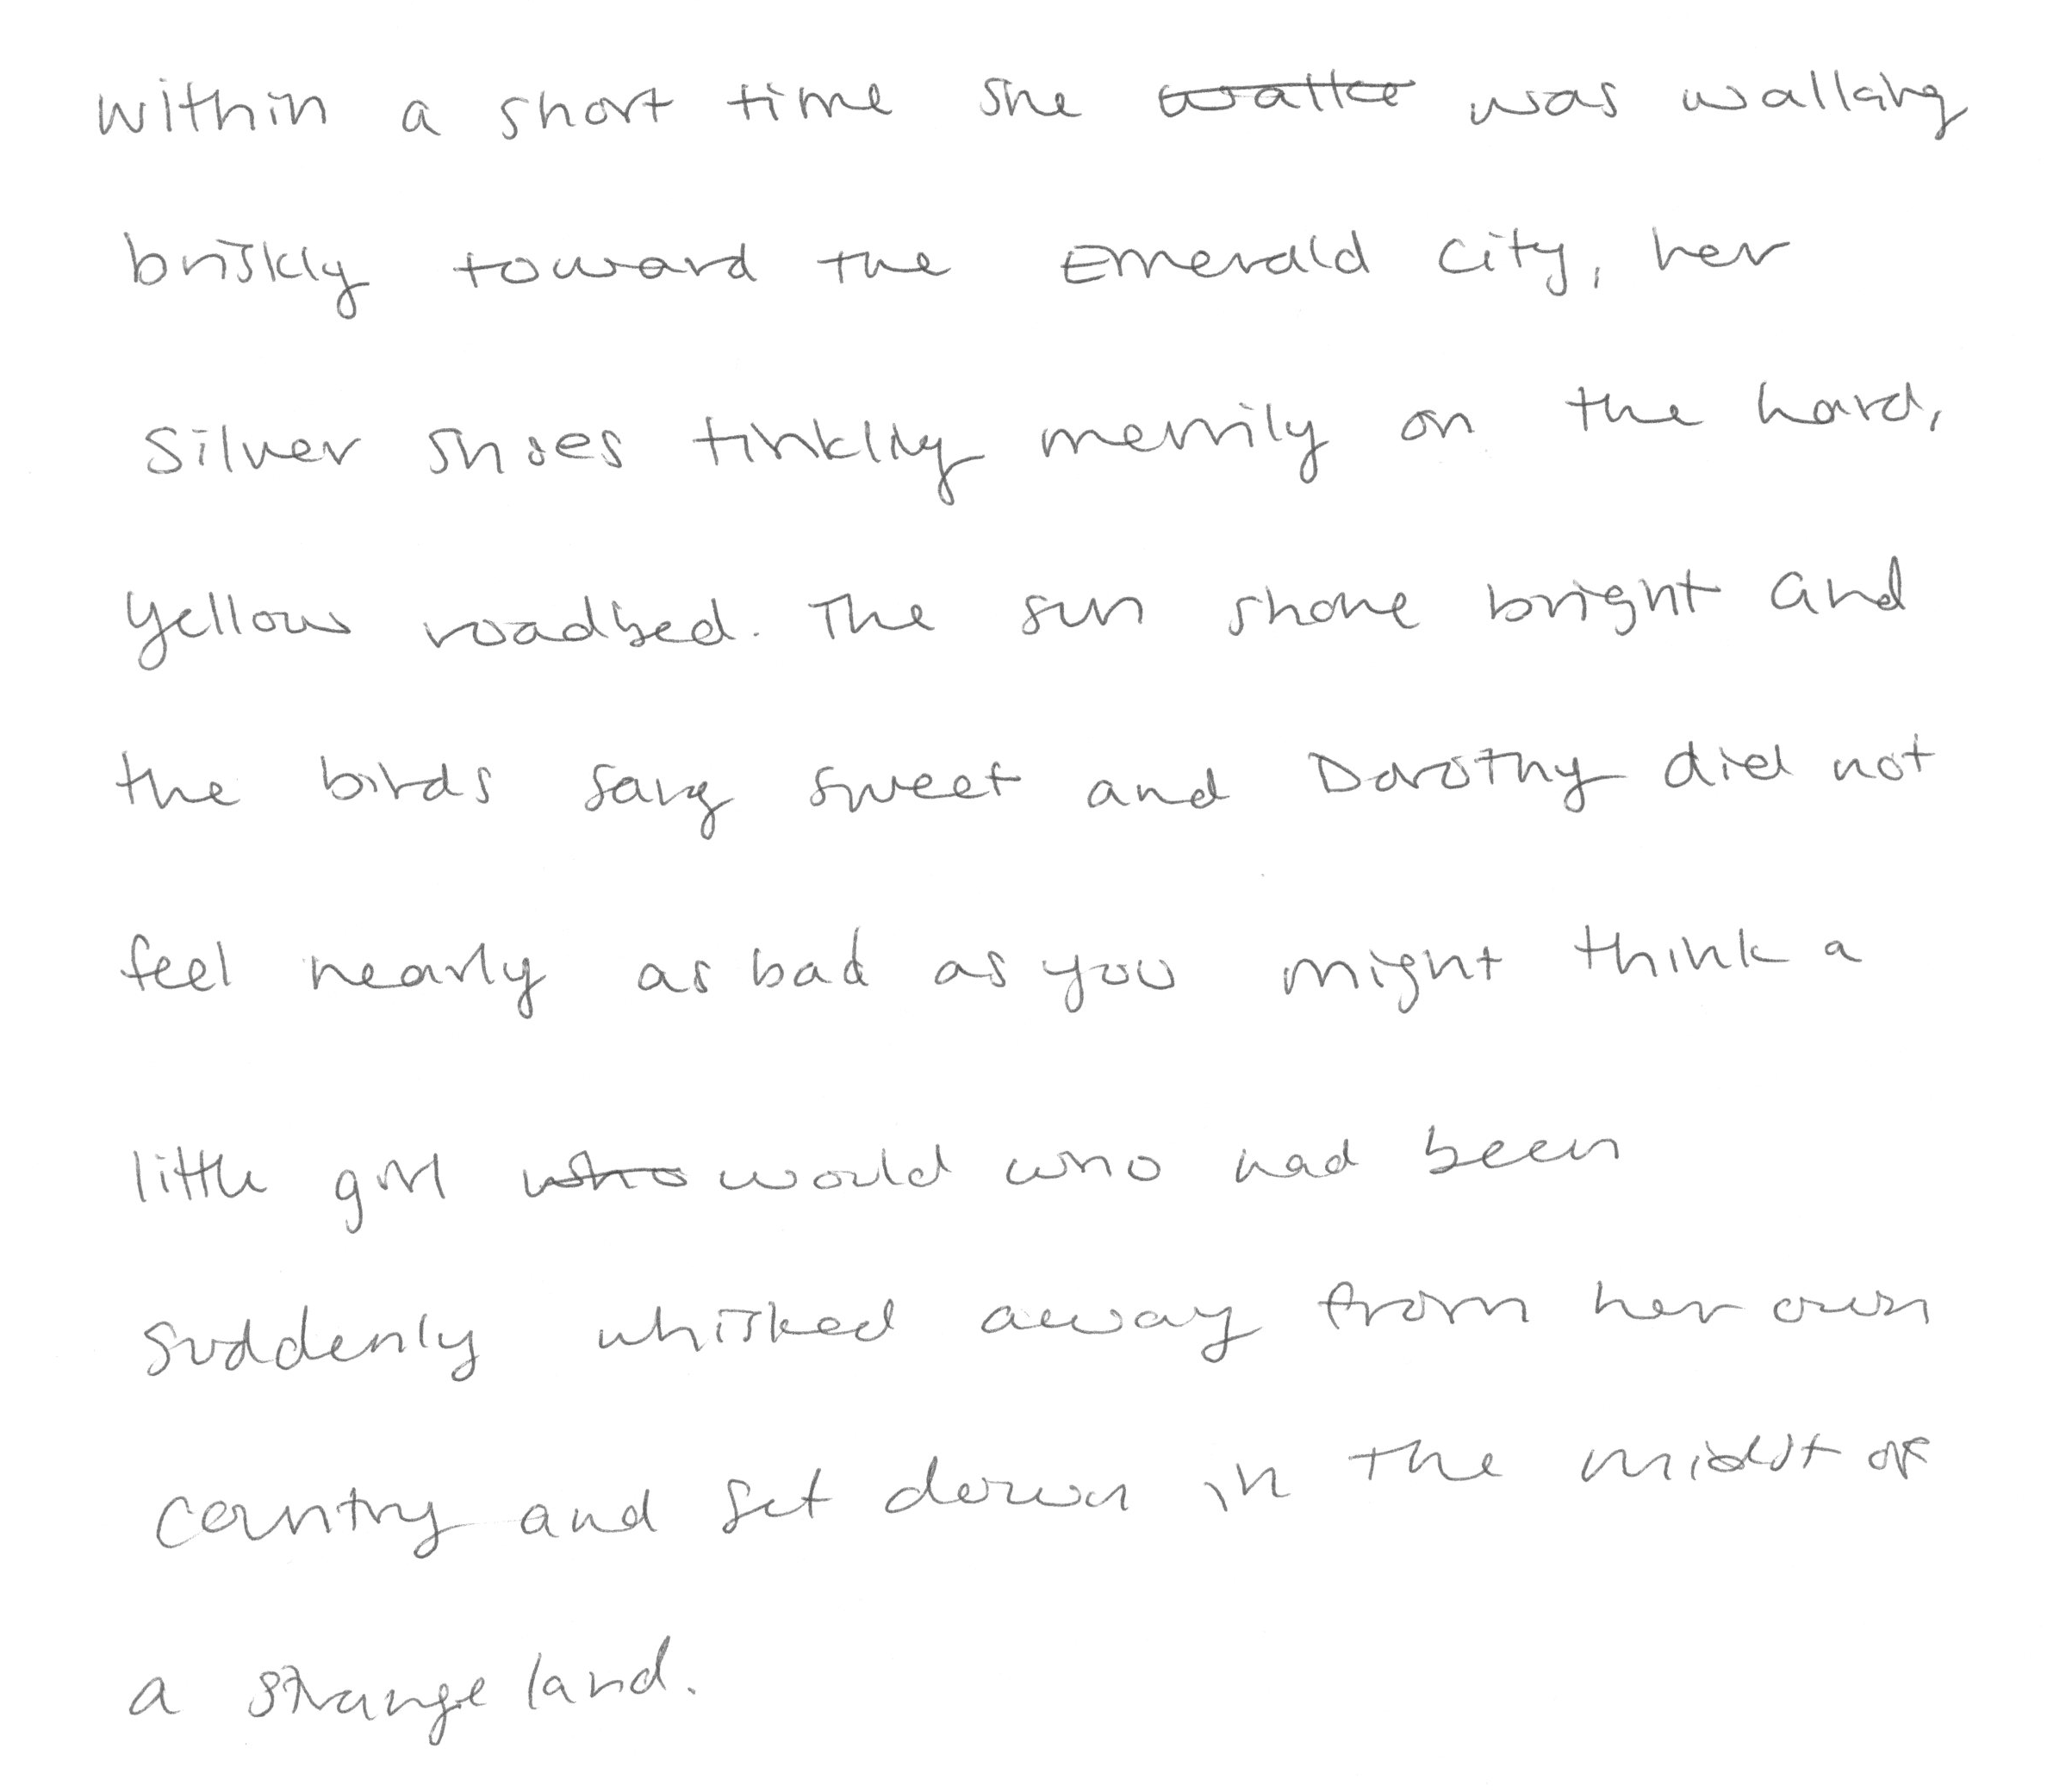 Within a short time she walke was walking
briskly toward the Emerald City, her
silver shoes tinkling merrily on the hard,
yellow roadbed. The sun shone bright and
the birds sang sweet and Dorothy did not
feel nearly as bad as you might think a
little girl who would who had been
suddenly whisked away from her own
country and set down in the midst of
a strange land.